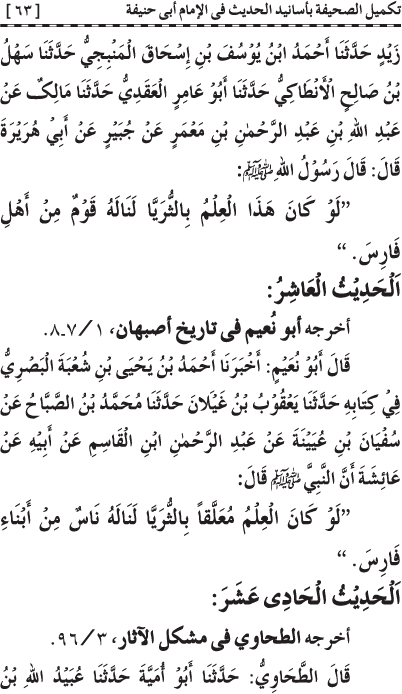 تكميل الصحيفة بأسانيد الحديث فى الإمام أبى حنيفة [ ٦٣ ]
زَيْدٍ حَدَّثَنَا أَحْمَدُ ابْنُ يُوْسُفَ بْنِ إِسْحَاقَ الْمَنْبِجِيُّ حَدَّثَنَا سَهْلُ
بْنُ صَالِحِ الْأَنْطَاكِيُّ حَدَّثَنَا أَبُوْ عَامِرِ الْعَقَدِيُّ حَدَّثَنَا مَالِكٌ عَنْ
عَبْدِ اللهِ بْنِ عَبْدِ الرَّحْمٰنِ بْنِ مَعْمَرٍ عَنْ جُبَيْرٍ عَنْ أَبِيْ هُرَيْرَةَ
قَالَ: قَالَ رَسُوْلُ اللهِ ﷺ:
”لَوْ كَانَ هَذَا الْعِلْمُ بِالثُّرَيَّا لَنَالَهُ قَوْمٌ مِنْ أَهْلِ
فَارِسَ. “
اَلْحَدِيْثُ الْعَاشِرُ:
أخرجه أبو نُعيم فى تاريخ أصبهان، ١/٧ـ٨.
قَالَ أَبُوْ نُعَيْمٍ: أَخْبَرَنَا أَحْمَدُ بْنُ يَحْيَى بْنِ شُعْبَةَ الْبَصْرِيُّ
فِيْ كِتَابِهِ حَدَّثَنَا يَعْقُوْبُ بْنُ غَيْلَانَ حَدَّثَنَا مُحَمَّدُ بْنُ الصَّبَّاحُ عَنْ
سُفْيَانَ بْنِ عُيَيْنَةَ عَنْ عَبْدِ الرَّحْمٰنِ ابْنِ الْقَاسِمِ عَنْ أَبِيْهِ عَنْ
عَائِشَةَ أَنَّ النَّبِيَّ ﷺ قَالَ:
”لَوْ كَانَ الْعِلْمُ مُعَلَّقاً بِالثُّرَيَّا لَنَالَهُ نَاسٌ مِنْ أَبْنَاءِ
فَارِسَ. “
اَلْحَدِيْثُ الْحَادِى عَشَرَ:
أخرجه الطحاوي فى مشكل الآثار، ٣/٩٦.
قَالَ الطَّحَاوِيُّ: حَدَّثَنَا أَبُوْ أُمَيَّةَ حَدَّثَنَا عُبَيْدُ اللهِ بْنُ